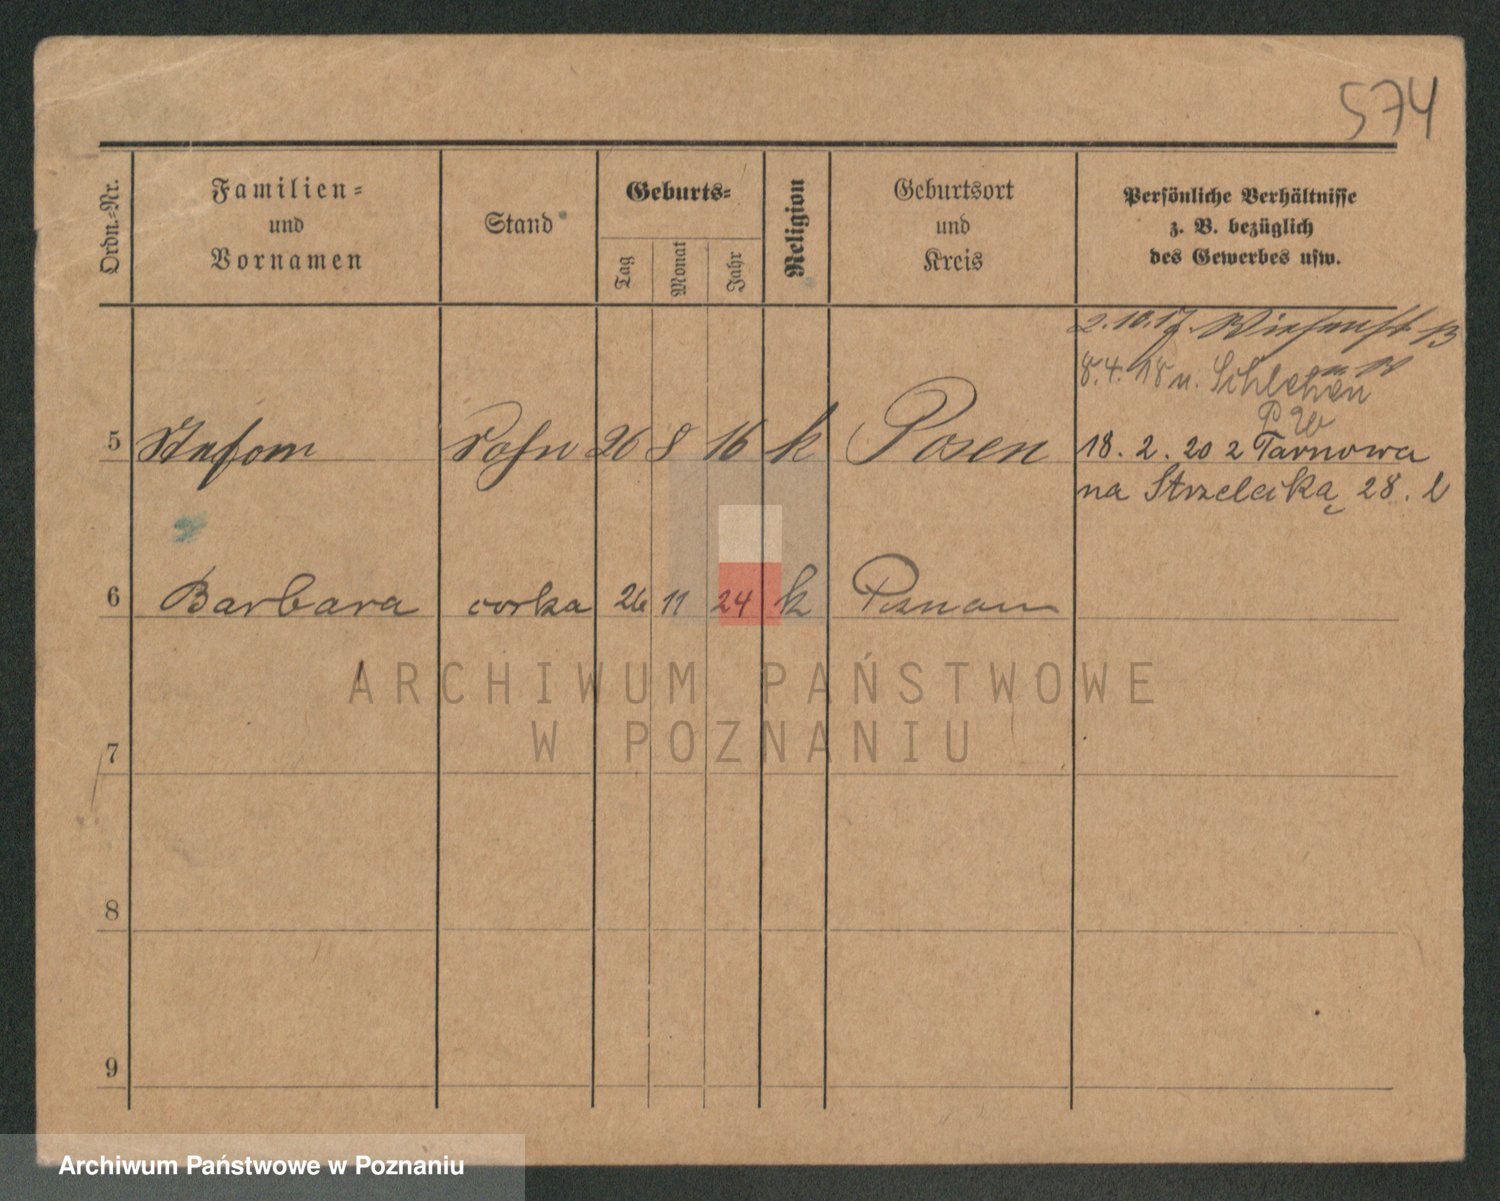 574
Ordn.-Nr.
Familien-
und
Vornamen
Stand
Geburts-
Tag
Monat
Jahr
Religion
Geburtsort
und
Kreis
Persönliche Verhältnisse
z. B. bezüglich
des Gewerbes usw.
2.10.17.
8.4.18 n.
5 Sohn 26 8 16 k Posen 18. 2. 20 z Tarnowa
na Strzelecką 28. l
6 Barbara corka 26 11 24 k Poznan
7
8
9
ARCHIWUM PAŃSTWOWE
W POZNANIU
Archiwum Państwowe w Poznaniu